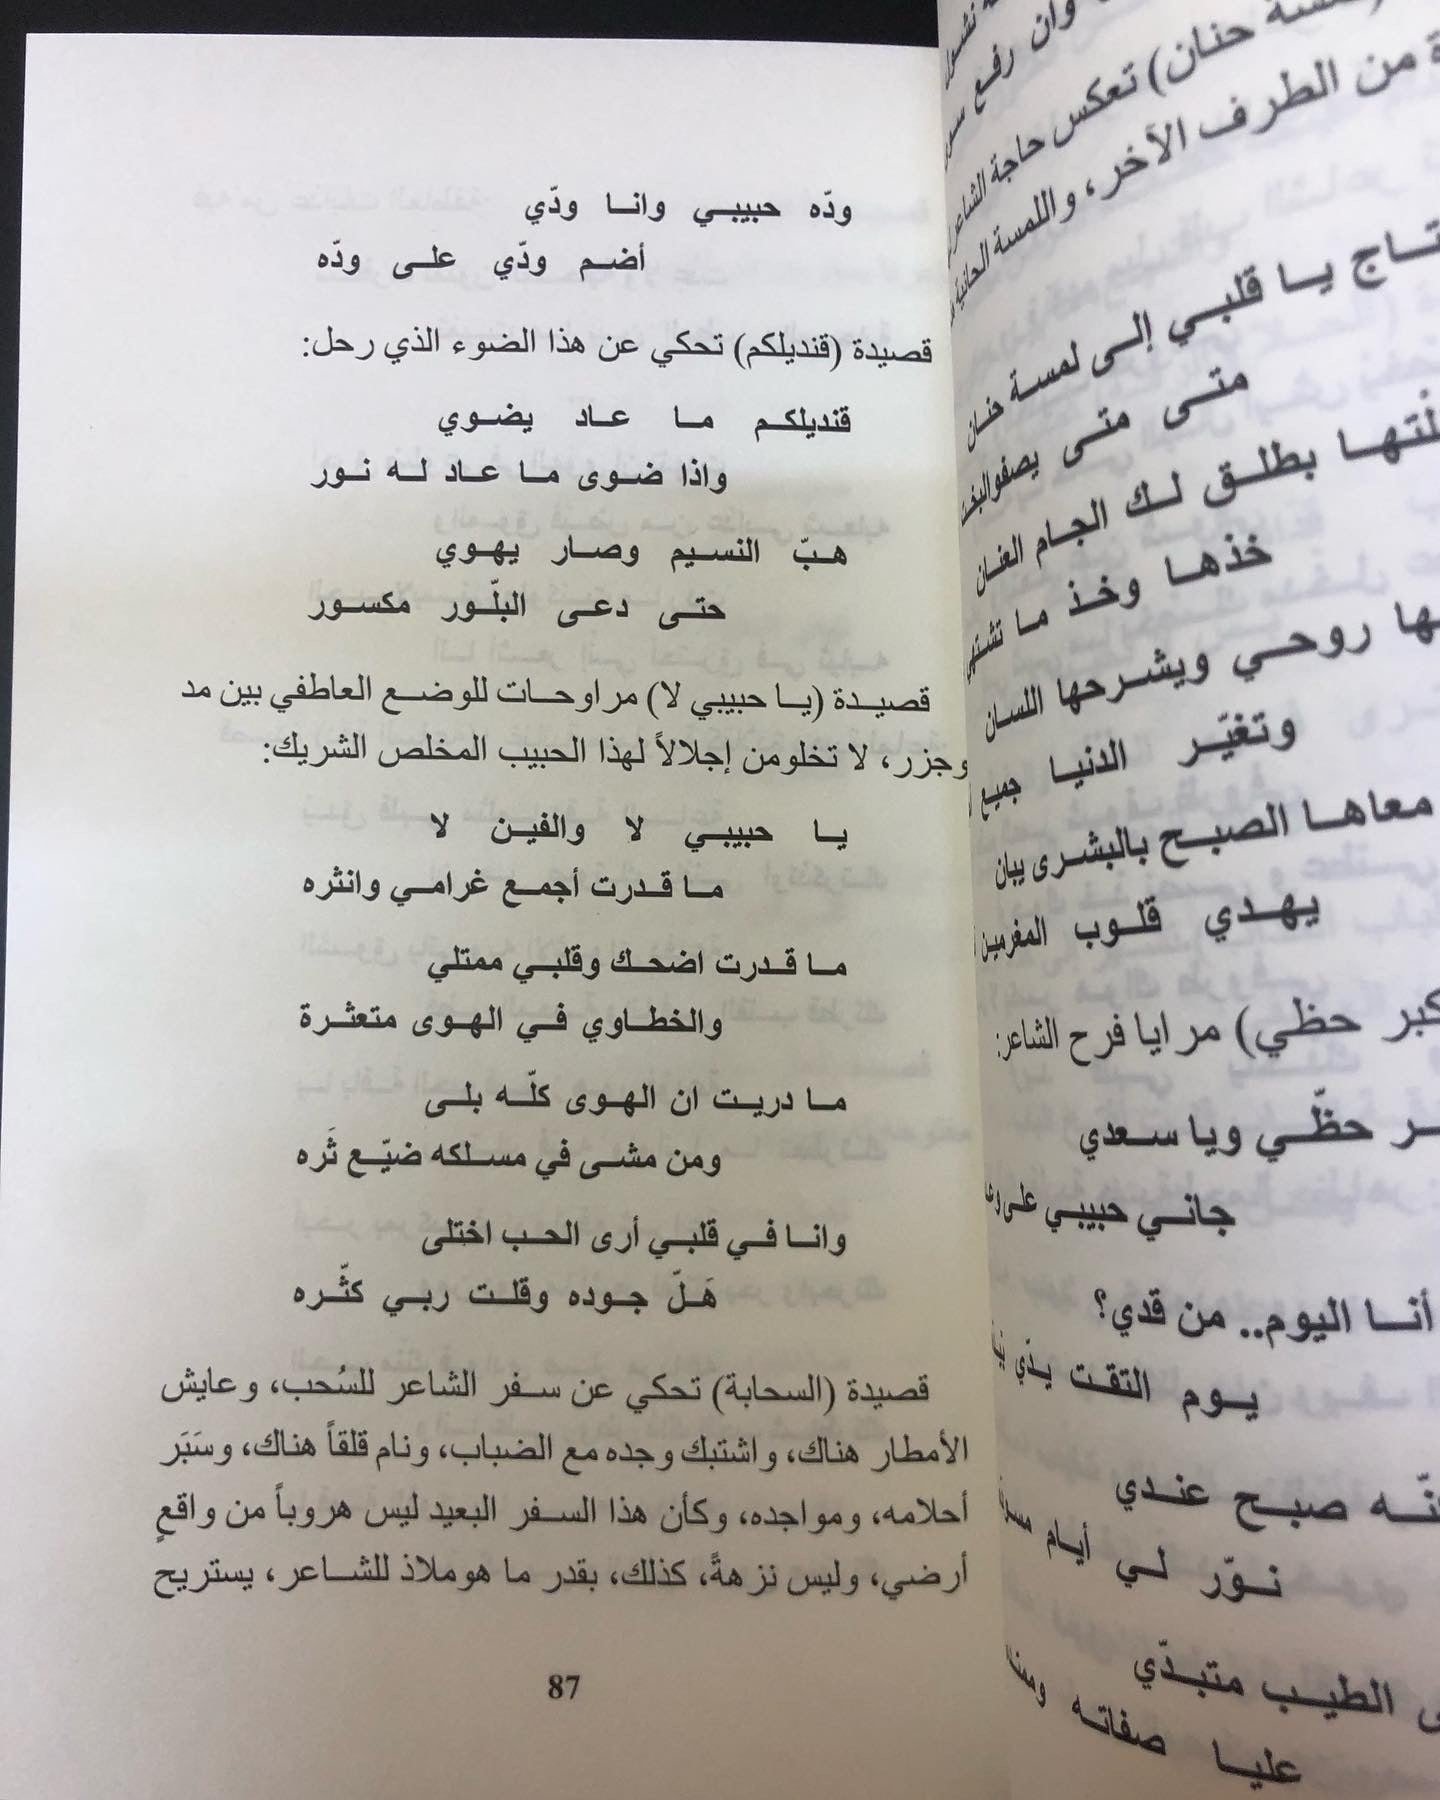 ودّه حبيبي وانا ودّي
أضم ودّي على ودّه
قصيدة (قنديلكم) تحكي عن هذا الضوء الذي رحل:
قنديلكم ما عاد يضوي
واذا ضوى ما عاد له نور
هبّ النسيم وصار يهوي
حتى دعى البلّور مكسور
قصيدة (يا حبيبي لا) مراوحات للوضع العاطفي بين مد
وجزر، لا تخلومن إجلالاً لهذا الحبيب المخلص الشريك:
يا حبيبي لا والفين لا
ما قدرت أجمع غرامي وانثره
ما قدرت اضحك وقلبي ممتلي
والخطاوي في الهوى متعثرة
ما دريت ان الهوى كلّه بلى
ومن مشى في مسلكه ضيّع ثَره
وانا في قلبي أرى الحب اختلى
هَلّ جوده وقلت ربي كثّره
قصيدة (السحابة) تحكي عن سفر الشاعر للسُحب، وعايش
الأمطار هناك، واشتبك وجده مع الضباب، ونام قلقاً هناك، وسَبَر
أحلامه، ومواجده، وكأن هذا السفر البعيد ليس هروباً من واقعٍ
أرضي، وليس نزهةً، كذلك، بقدر ما هوملاذ للشاعر، يستريح
87
وان رفع
حنان) تعكس حاجة الشاعر
من الطرف الآخر، واللمسة الحانية
يا قلبي إلى لمسة حنان
متى متى يصفوالبخت
بطلق لك الجام العنان
خذها وخذ ما تشتهي
روحي ويشرحها اللسان
وتغيّر الدنيا جميع
معاها الصبح بالبشرى يبان
يهدي قلوب المغرمين
حظي) مرايا فرح الشاعر:
حظّي ويا سعدي
جاني حبيبي على
أنا اليوم.. من قدي؟
يوم التقت يدّي
صبح عندي
نوّر لي أيام
الطيب متبدّي
عليا صفاته